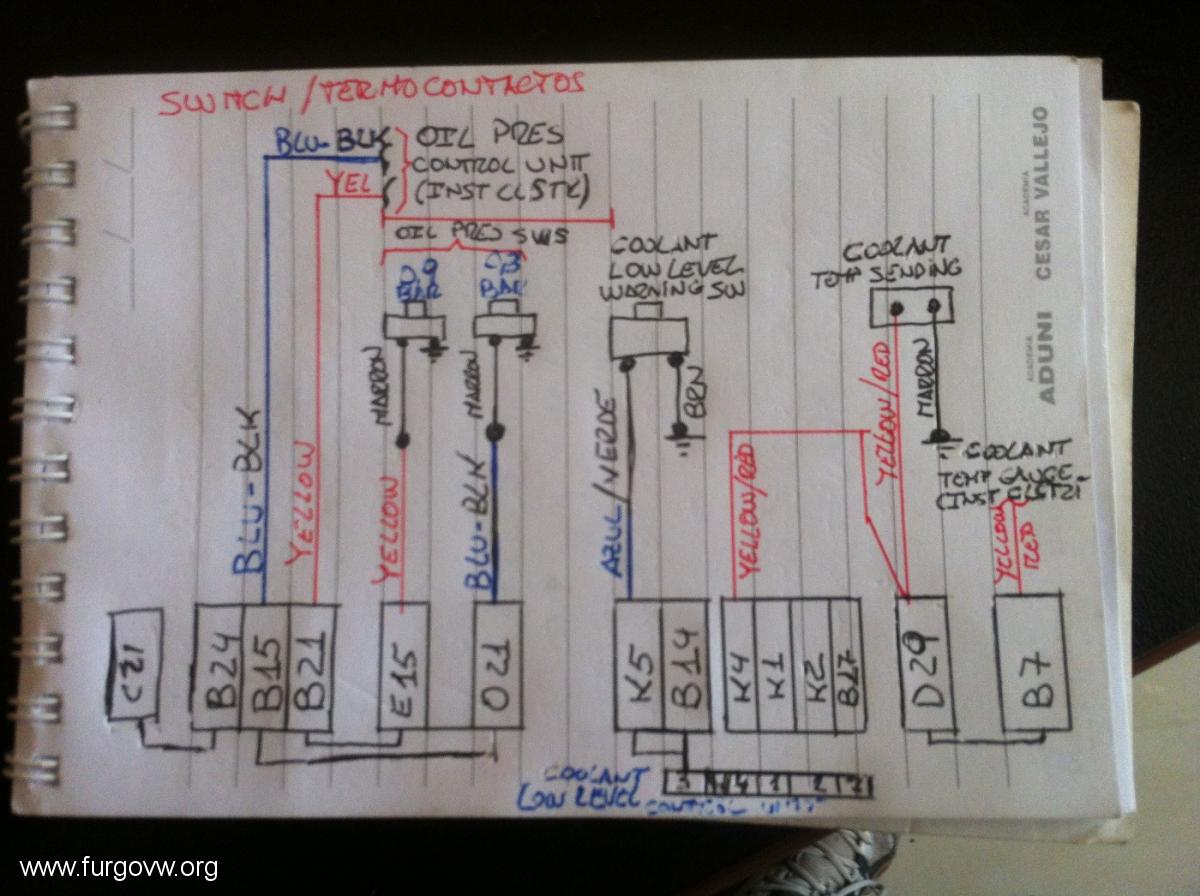 SWITCH/TERMOCONTACTOS
BLU-BLK
YEL
OIL PRES
CONTROL UNIT
(INST CLSTR)
OIL PRES SWS
BAR
BAR
COOLANT
LOW LEVEL
WARNING SW
COOLANT
TEMP SENDING
MARRON
MARRON
BRN
YELLOW/RED
MARRON
COOLANT
TEMP GAUGE
BLU-BLK
YELLOW
YELLOW
BLU-BLK
AZUL/VERDE
YELLOW/RED
YELLOW
RED
C21
B24
B15
B21
E15
O21
K5
B14
K4
K1
K2
B27
D29
B7
COOLANT
LOW LEVEL
CONTROL UNIT
3
4
1
2
ACADEMIA
ADUNI
ACADEMIA
CESAR VALLEJO
www.furgovw.org